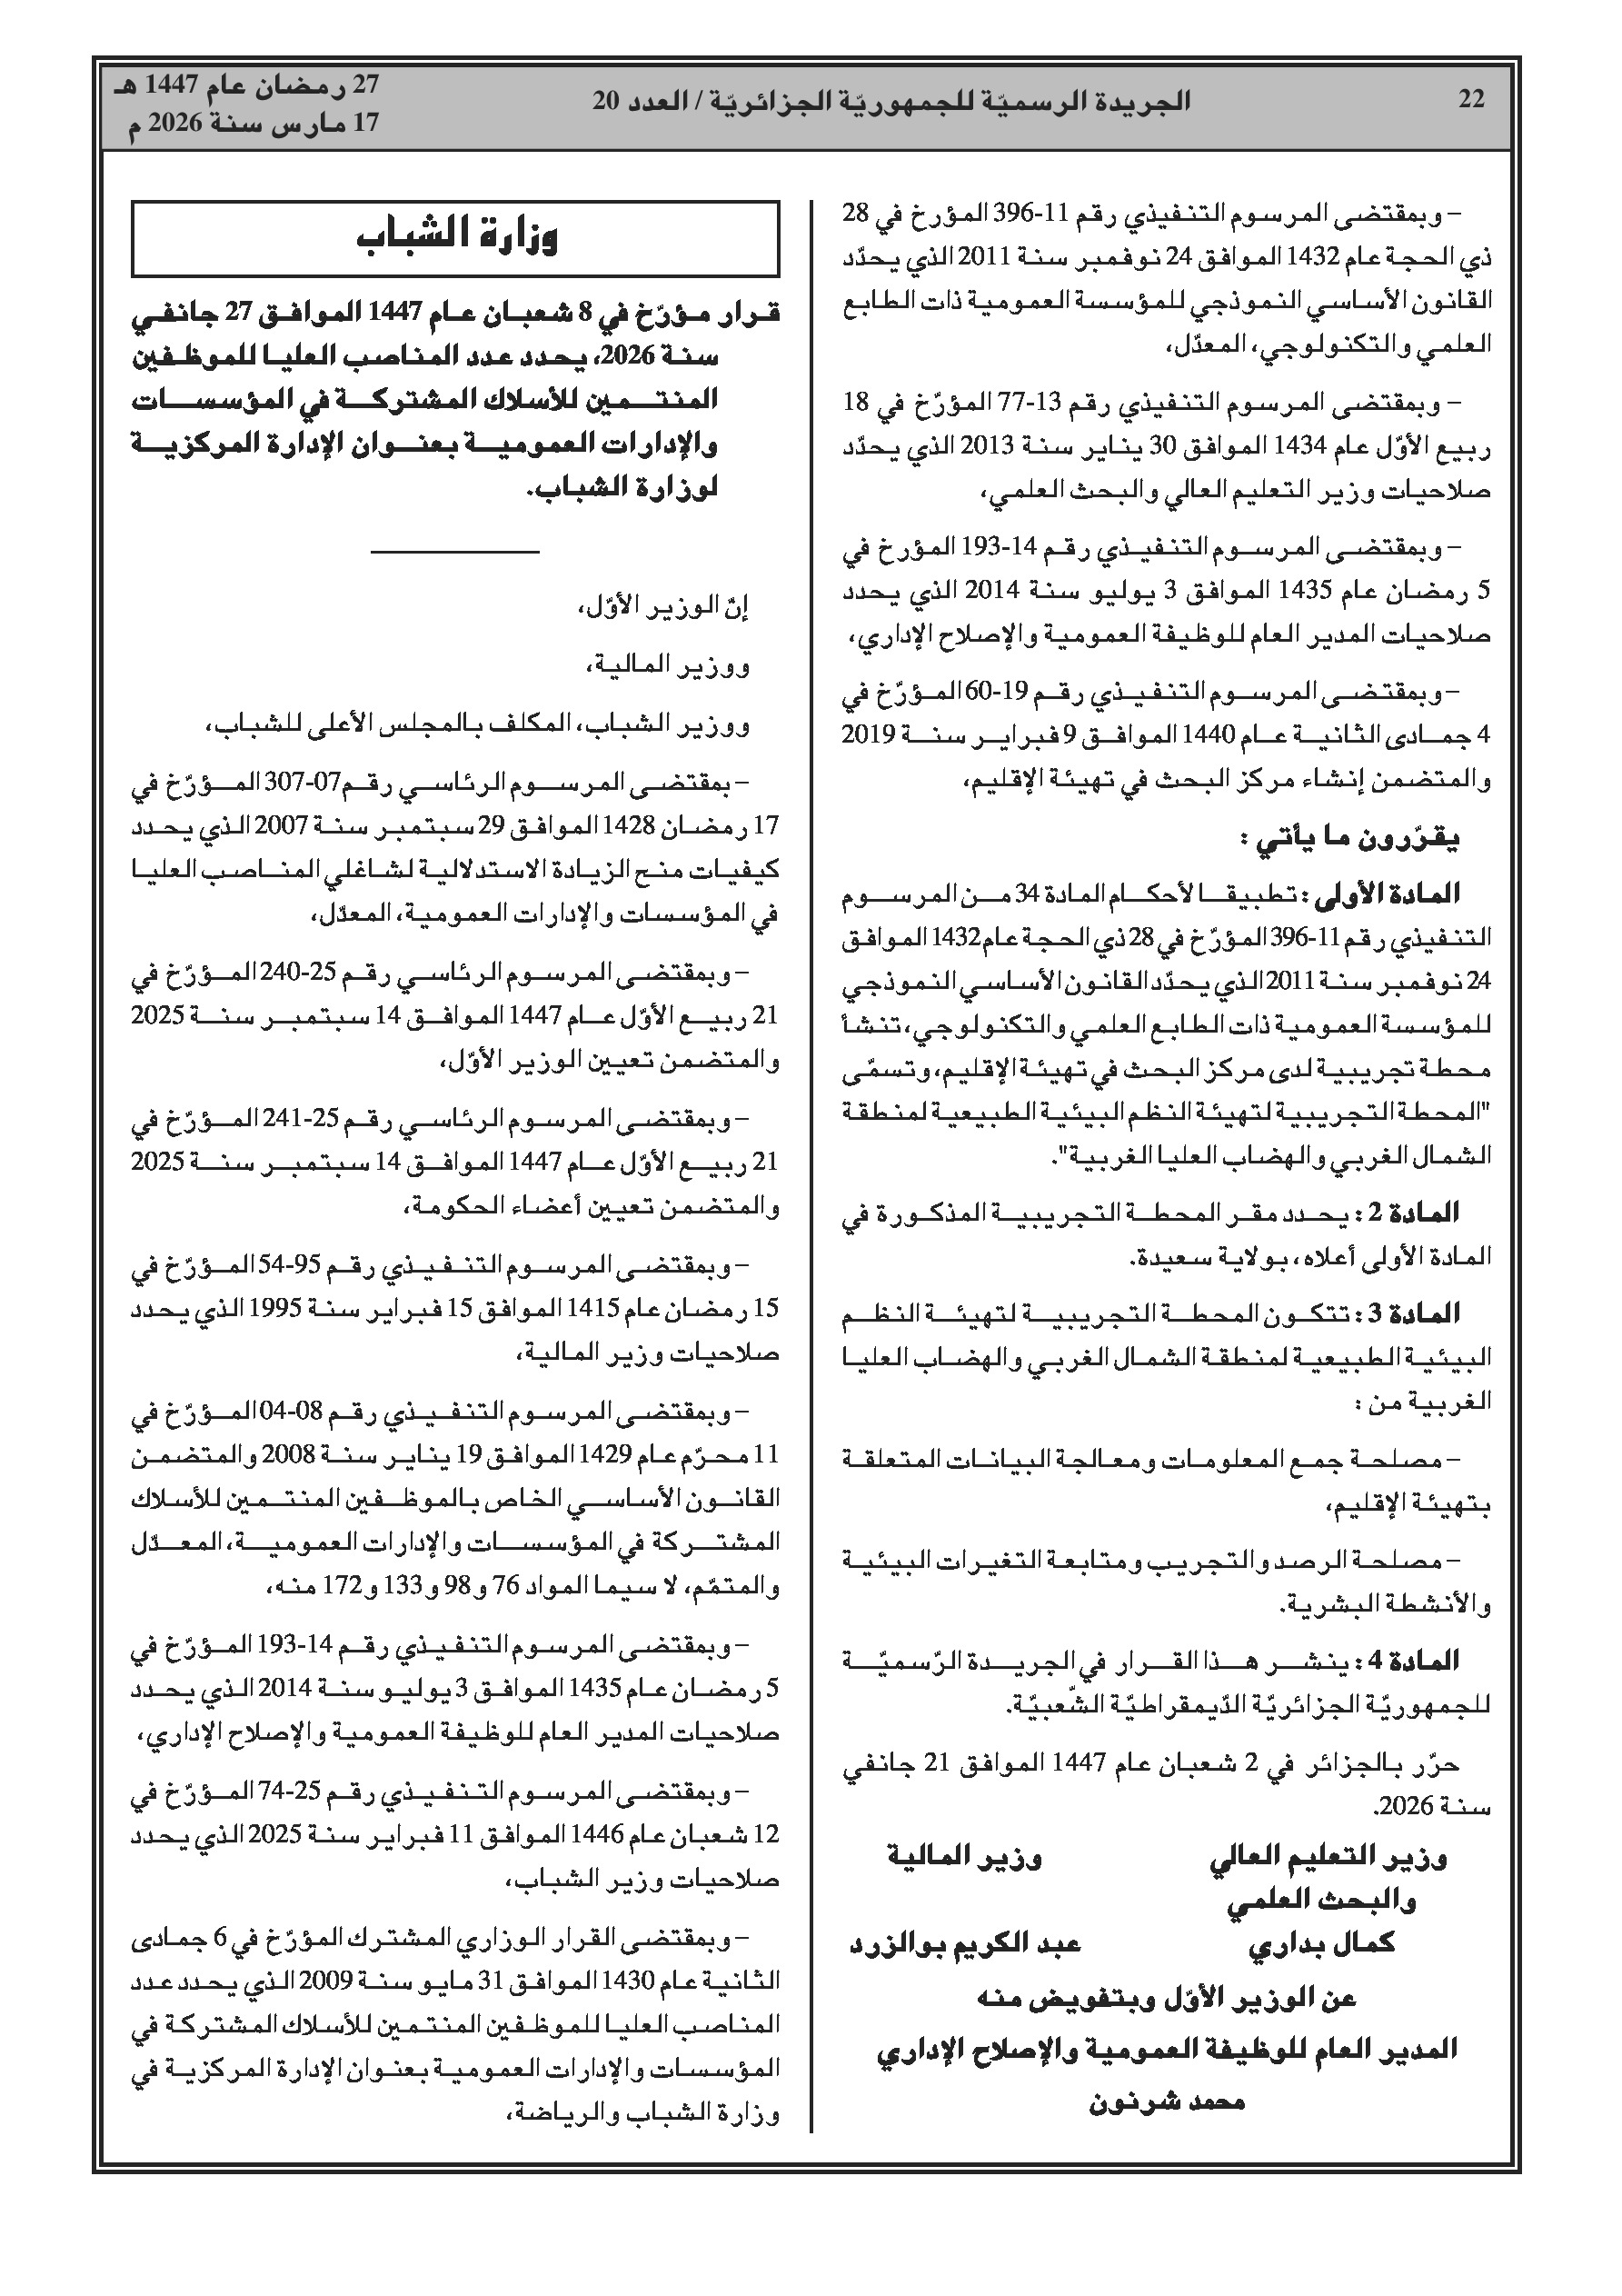 22
الجريدة الرسميّة للجمهوريّة الجزائريّة / العدد 20
27 رمضان عام 1447 هـ
17 مارس سنة 2026 م
– وبمقتضى المرسوم التنفيذي رقم 11-396 المؤرخ في 28
ذي الحجة عام 1432 الموافق 24 نوفمبر سنة 2011 الذي يحدّد
القانون الأساسي النموذجي للمؤسسة العمومية ذات الطابع
العلمي والتكنولوجي، المعدّل،
– وبمقتضى المرسوم التنفيذي رقم 13-77 المؤرّخ في 18
ربيع الأوّل عام 1434 الموافق 30 يناير سنة 2013 الذي يحدّد
صلاحيات وزير التعليم العالي والبحث العلمي،
– وبمقتضى المرسوم التنفيذي رقم 14-193 المؤرخ في
5 رمضان عام 1435 الموافق 3 يوليو سنة 2014 الذي يحدد
صلاحيات المدير العام للوظيفة العمومية والإصلاح الإداري،
– وبمقتضى المرسوم التنفيذي رقم 19-60 المؤرّخ في
4 جمادى الثانية عام 1440 الموافق 9 فبراير سنة 2019
والمتضمن إنشاء مركز البحث في تهيئة الإقليم،
يقرّرون ما يأتي :
المادة الأولى : تطبيقا لأحكام المادة 34 من المرسوم
التنفيذي رقم 11-396 المؤرّخ في 28 ذي الحجة عام 1432 الموافق
24 نوفمبر سنة 2011 الذي يحدّد القانون الأساسي النموذجي
للمؤسسة العمومية ذات الطابع العلمي والتكنولوجي، تنشأ
محطة تجريبية لدى مركز البحث في تهيئة الإقليم، وتسمّى
"المحطة التجريبية لتهيئة النظم البيئية الطبيعية لمنطقة
الشمال الغربي والهضاب العليا الغربية".
المادة 2 : يحدد مقر المحطة التجريبية المذكورة في
المادة الأولى أعلاه، بولاية سعيدة.
المادة 3 : تتكون المحطة التجريبية لتهيئة النظم
البيئية الطبيعية لمنطقة الشمال الغربي والهضاب العليا
الغربية من :
– مصلحة جمع المعلومات ومعالجة البيانات المتعلقة
بتهيئة الإقليم،
– مصلحة الرصد والتجريب ومتابعة التغيرات البيئية
والأنشطة البشرية.
المادة 4 : ينشر هذا القرار في الجريدة الرّسميّة
للجمهوريّة الجزائريّة الدّيمقراطيّة الشّعبيّة.
حرّر بالجزائر في 2 شعبان عام 1447 الموافق 21 جانفي
سنة 2026.
وزير التعليم العالي
والبحث العلمي
كمال بداري
وزير المالية
عبد الكريم بوالزرد
عن الوزير الأوّل وبتفويض منه
المدير العام للوظيفة العمومية والإصلاح الإداري
محمد شرنون
وزارة الشباب
قرار مؤرّخ في 8 شعبان عام 1447 الموافق 27 جانفي
سنة 2026، يحدد عدد المناصب العليا للموظفين
المنتمين للأسلاك المشتركة في المؤسسات
والإدارات العمومية بعنوان الإدارة المركزية
لوزارة الشباب.
إنّ الوزير الأوّل،
ووزير المالية،
ووزير الشباب، المكلف بالمجلس الأعلى للشباب،
– بمقتضى المرسوم الرئاسي رقم 07-307 المؤرّخ في
17 رمضان 1428 الموافق 29 سبتمبر سنة 2007 الذي يحدد
كيفيات منح الزيادة الاستدلالية لشاغلي المناصب العليا
في المؤسسات والإدارات العمومية، المعدّل،
– وبمقتضى المرسوم الرئاسي رقم 25-240 المؤرّخ في
21 ربيع الأوّل عام 1447 الموافق 14 سبتمبر سنة 2025
والمتضمن تعيين الوزير الأوّل،
– وبمقتضى المرسوم الرئاسي رقم 25-241 المؤرّخ في
21 ربيع الأوّل عام 1447 الموافق 14 سبتمبر سنة 2025
والمتضمن تعيين أعضاء الحكومة،
– وبمقتضى المرسوم التنفيذي رقم 95-54 المؤرّخ في
15 رمضان عام 1415 الموافق 15 فبراير سنة 1995 الذي يحدد
صلاحيات وزير المالية،
– وبمقتضى المرسوم التنفيذي رقم 08-04 المؤرّخ في
11 محرّم عام 1429 الموافق 19 يناير سنة 2008 والمتضمن
القانون الأساسي الخاص بالموظفين المنتمين للأسلاك
المشتركة في المؤسسات والإدارات العمومية، المعدّل
والمتمّم، لا سيما المواد 76 و98 و133 و172 منه،
– وبمقتضى المرسوم التنفيذي رقم 14-193 المؤرّخ في
5 رمضان عام 1435 الموافق 3 يوليو سنة 2014 الذي يحدد
صلاحيات المدير العام للوظيفة العمومية والإصلاح الإداري،
– وبمقتضى المرسوم التنفيذي رقم 25-74 المؤرّخ في
12 شعبان عام 1446 الموافق 11 فبراير سنة 2025 الذي يحدد
صلاحيات وزير الشباب،
– وبمقتضى القرار الوزاري المشترك المؤرّخ في 6 جمادى
الثانية عام 1430 الموافق 31 مايو سنة 2009 الذي يحدد عدد
المناصب العليا للموظفين المنتمين للأسلاك المشتركة في
المؤسسات والإدارات العمومية بعنوان الإدارة المركزية في
وزارة الشباب والرياضة،